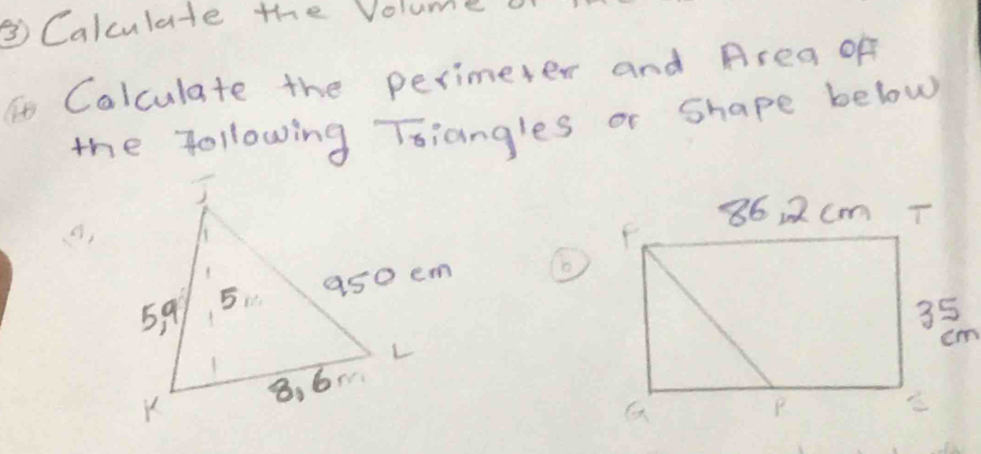 ③ Calculate the Volume
Calculate the perimeter and Area of
the following Triangles or Shape below
J
86,2 cm T
a,
F
b
950 cm
5,9
5 m
35
cm
L
8,6 m
K
G P S